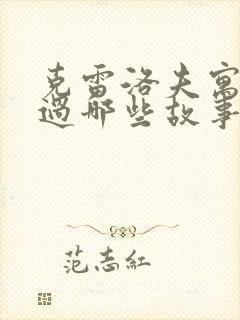 克雷洛夫寓
過那些故事
范志紅